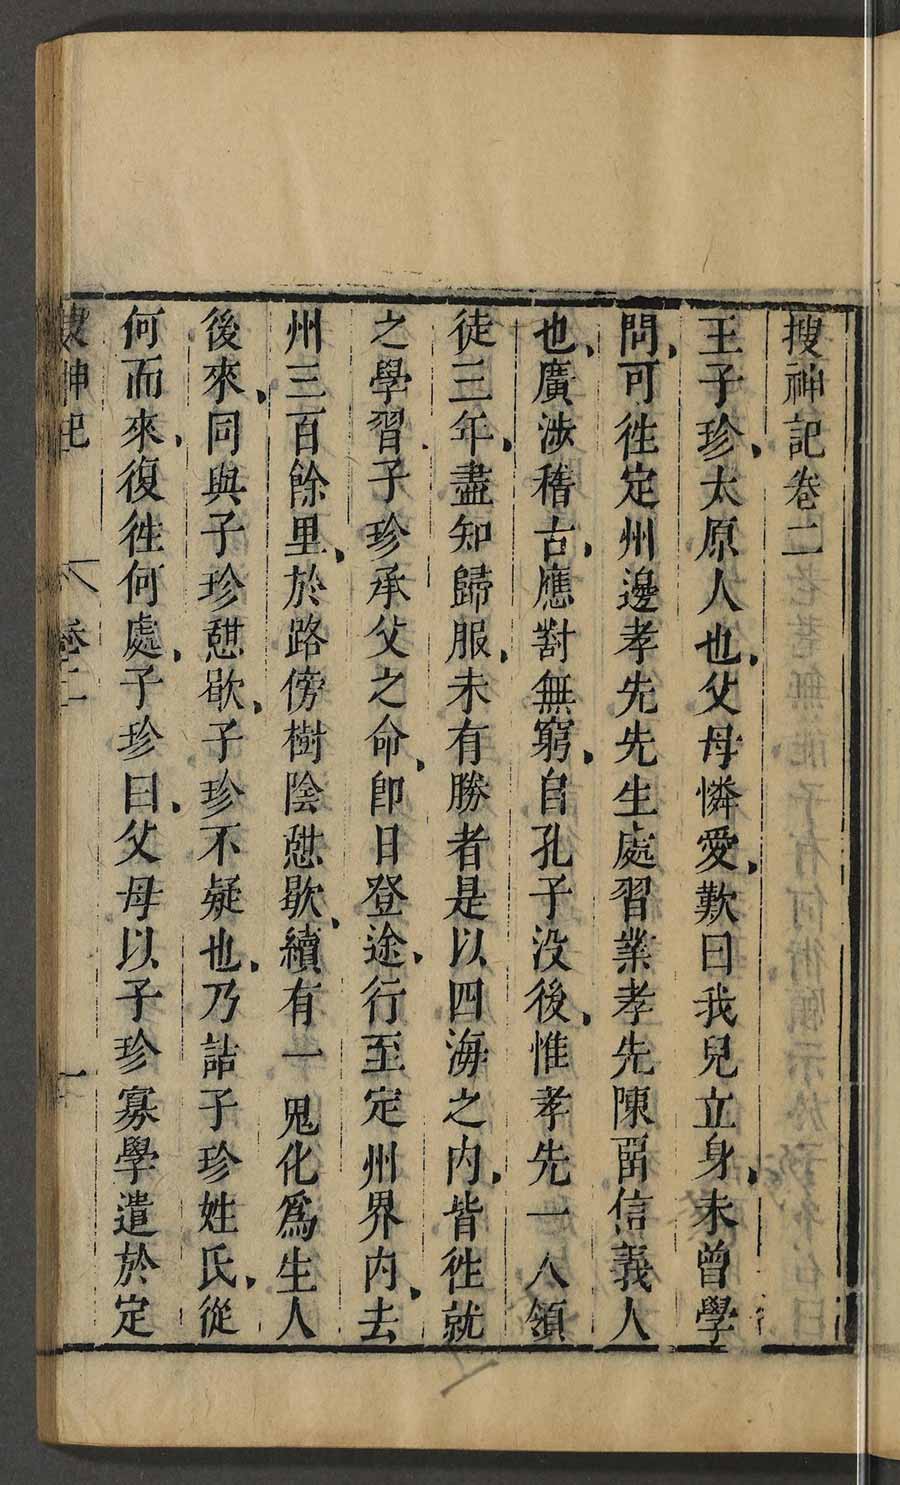 搜神記卷二
王子珍、太原人也、父母憐愛、歎曰我兒立身、未曾學
問、可徃定州邊孝先先生處習業孝先陳畱信義人
也、廣涉稽古、應對無窮、自孔子没後、惟孝先一人領
徒三年、盡知歸服、未有勝者是以四海之内、皆徃就
之學習、子珍承父之命、即日登途、行至定州界内、去
州三百餘里、於路傍樹陰憇歇、續有一鬼化爲生人
後來、同與子珍憇歇、子珍不疑也、乃詰子珍姓氏、從
何而來、復徃何處、子珍曰、父母以子珍寡學遣於定
搜神記 卷二 一